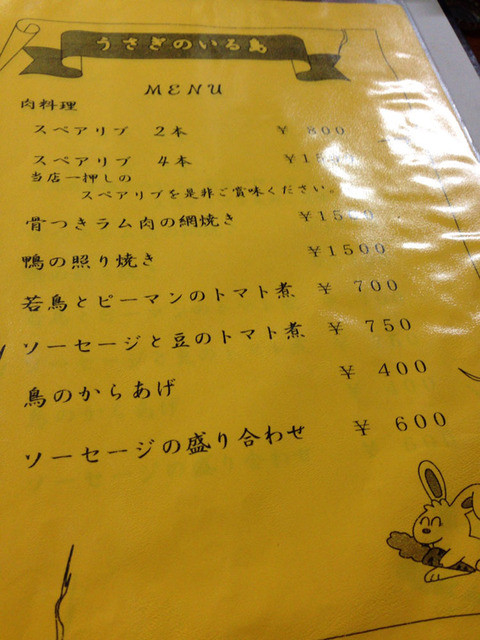 うさぎのいる島
MENU
肉料理
スペアリブ 2本 ¥ 800
スペアリブ 4本
当店一押しの
スペアリブを是非ご賞味ください。
骨つきラム肉の網焼き
鴨の照り焼き ¥1500
若鳥とピーマンのトマト煮 ¥ 700
ソーセージと豆のトマト煮 ¥ 750
鳥のからあげ ¥ 400
ソーセージの盛り合わせ ¥ 600